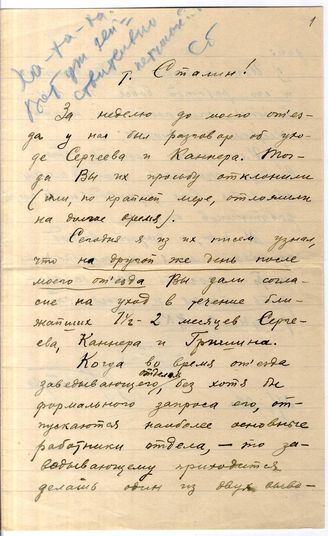 1
Ха-ха-ха!
Вот уж дей-
ствительно
петушок!
Сб
т. Сталин!
За неделю до моего от'ез-
да у нас был разговор об ухо-
де Сергеева и Каннера. Тог-
да Вы их просьбу отклонили
(или, по крайней мере, отложили
на долгое время).
Сегодня я из их писем узнал,
что на другой же день после
моего от'езда Вы дали согла-
сие на уход в течение бли-
жайших 1½-2 месяцев Серге-
ева, Каннера и Гришина.
Когда во время от'езда
заведывающего отделом, без хотя бы
формального запроса его, от-
пускаются наиболее основные
работники отдела, – то за-
ведывающему приходится
делать один из двух выво-